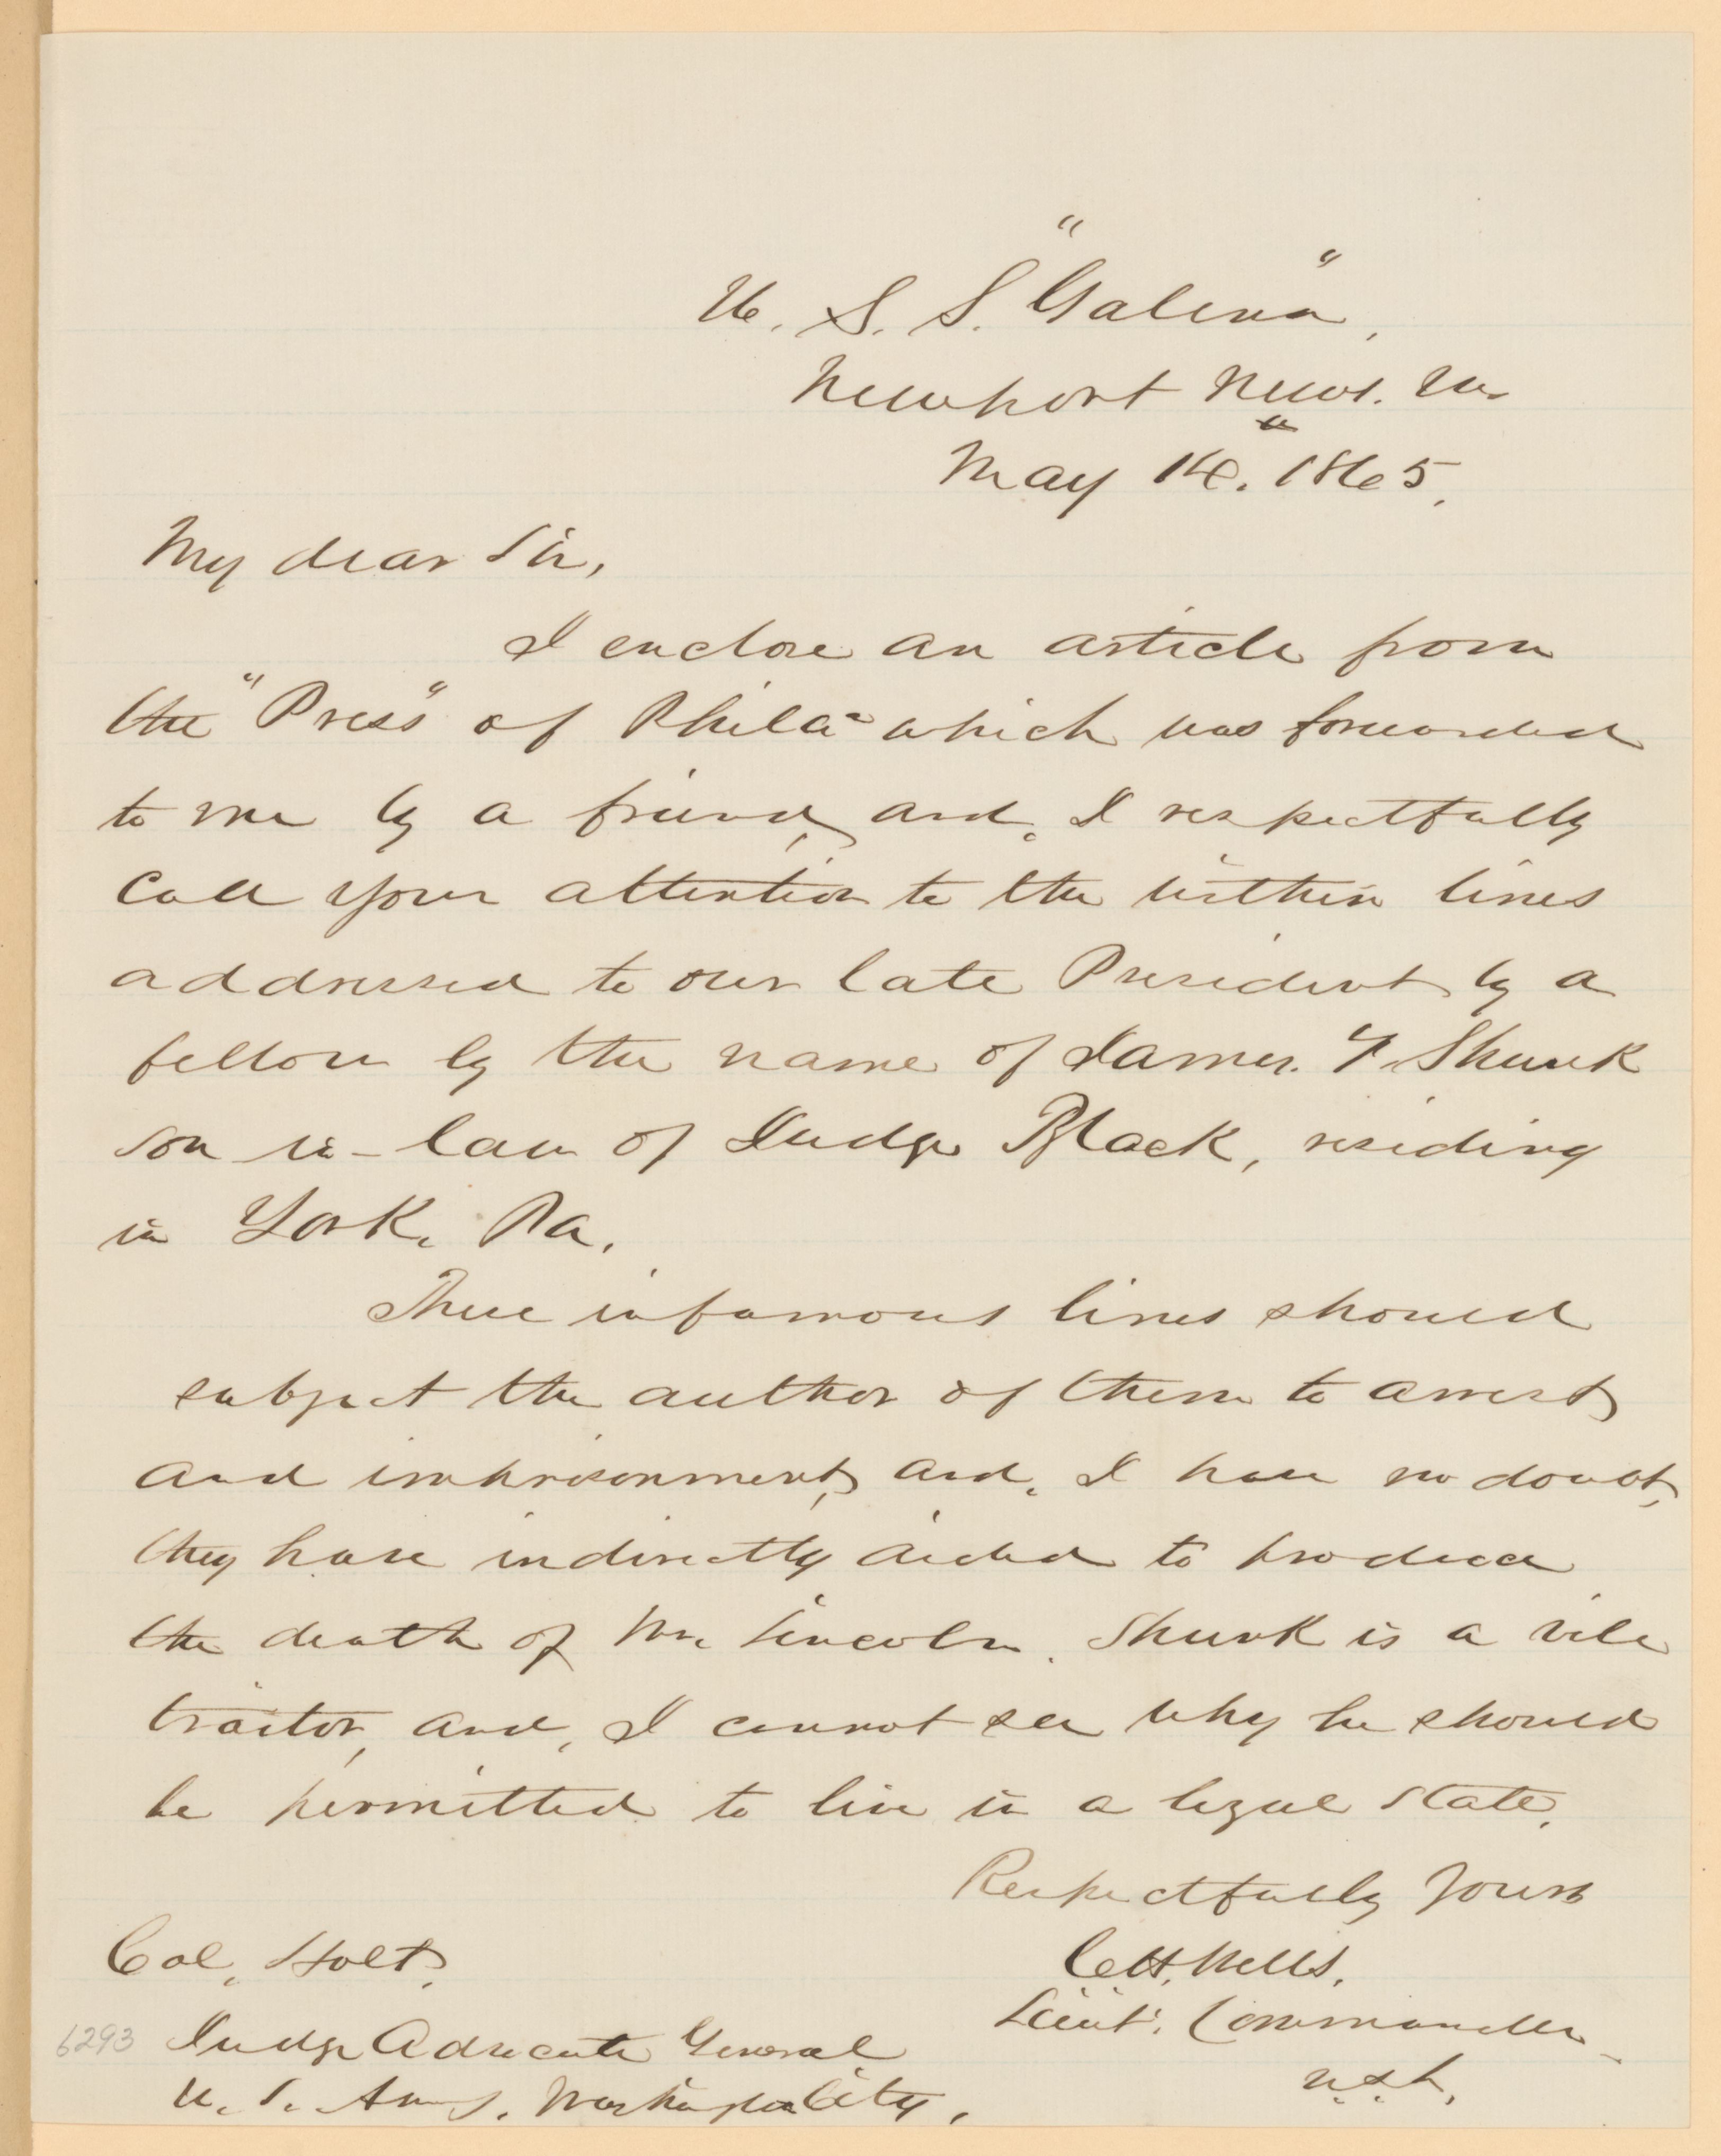 U. S. S. "Galena",
Newport News. Va
May 14. 1865.
My dear Sir,
I enclose an article from
the "Press" of Phila which was forwarded
to me by a friend, and, I respectfully
call your attention to the within lines
addressed to our late President by a
fellow by the name of James. F Shunk
son-in-law of Judge Black, residing
in York, Pa.
These infamous lines should
subject the author of them to arrest
and imprisonment, and, I have no doubt,
they have indirectly aided to produce
the death of Mr. Lincoln. Shunk is a vile
traitor, and, I cannot see why he should
be permitted to live in a loyal State.
Respectfully Yours
C.H. Wells.
Lieut. Commander
U.S.N.
Col. Holt.
Judge Advocate General
U. S. Army. Washington City.
6293